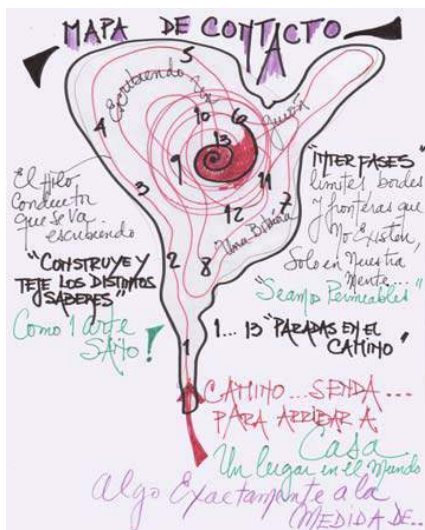 MAPA DE CONTACTO
5
Escribiendo
4
10
6
Guión
13
9
3
11
7
12
Una Bitácora
2
8
1
El Hilo
Conductor
que se va
escribiendo
"CONSTRUYE Y
TEJE LOS DISTINTOS
SABERES"
Como 1 arte
SANO!
"INTERFASES"
limites, bordes
y fronteras que
No Existen,
Solo en Nuestra
Mente...
"Seamos Permeables"
1... 13 "PARADAS EN EL
CAMINO"
CAMINO... SENDA...
PARA ARRIBAR A
Casa
Un lugar en el Mundo
Algo Exactamente a la
MEDIDA DE...